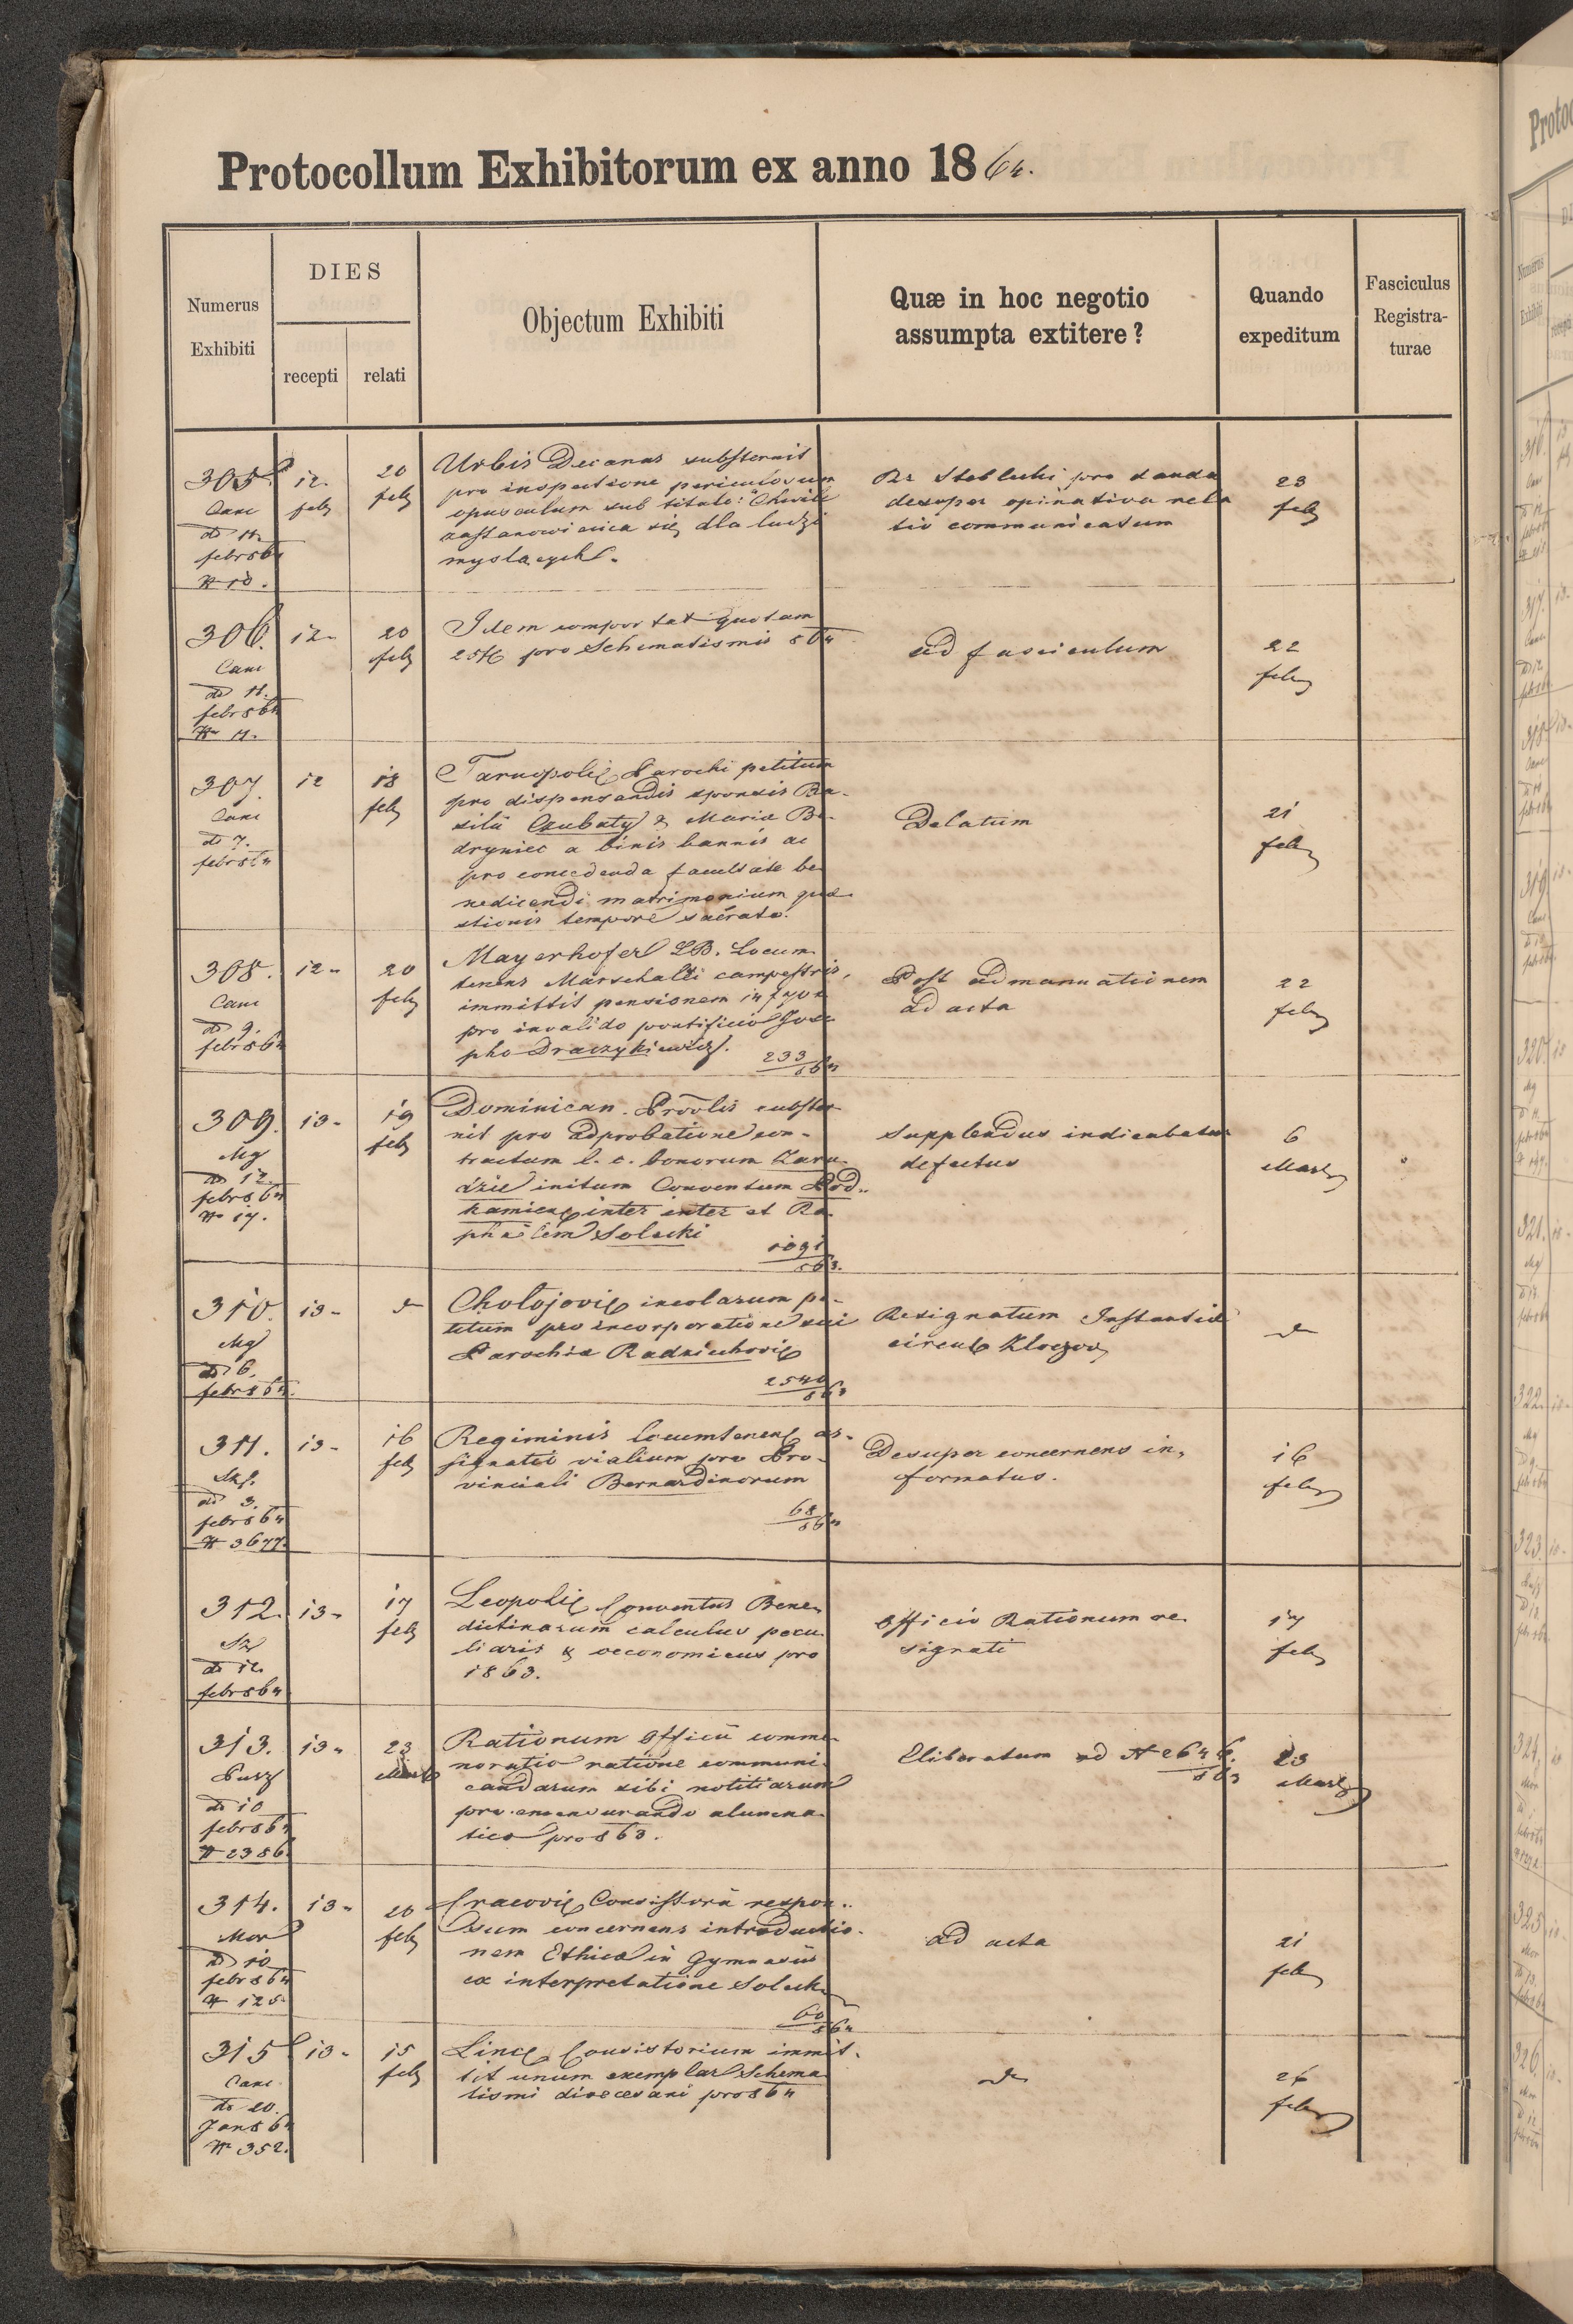 Protocollum Exhibitorum ex anno 1864.
Numerus
Exhibiti
DIES
recepti
relati
Objectum Exhibiti
Quæ in hoc negotio
assumpta extitere?
Quando
expeditum
Fasciculus
Registra-
turae
305.
Canc
dd 11
febr 864
N 10.
12.
feb
20
feb
Urbis Decanus substernit
pro inspectione periculosum
opusculum sub titulo: "Chwile
zastanowienia się dla ludzi
myslących.
Rr Steblecki pro danda
desuper opinativa rela
tio communicatum
23
feb
306.
Canc
dd 11.
febr 864
N 11.
12
20
feb
Idem comportat quotam
25 pro Schematismis 864
ad fasciculum
22
feb
307.
Canc
dd 7.
febr 864
12
18
feb
Tarnopoli Parochi petitum
pro dispensandis sponsis Ba-
silii Czubaty & Maria Be-
dryniec a binis bannis ac
pro concedenda facultate be
nedicendi matrimonium quae
stionis tempore sacrato.
Delatum
21
feb
308.
Canc
dd 9.
febr 864
12
20
feb
Mayerhofer LB. Locum
tenens Marschalli campestris,
immittit pensionem
pro invalido pontificio Jose
pho Draczykiewicz.
233
864
Post admanuationem
ad acta
22
feb
309.
Mg
dd 12
febr 864
N 17.
13
19
feb
Dominican. Provlis subster
nit pro adprobatione con-
tractum l. c. bonorum Zaru
dzie initum Conventum Pod
kamien inter inter et Ra
phaëlem Solecki
1091
863.
Supplendus indicabatur
defectus
6
Mart
310.
Mg
dd 6.
febr 864.
13
Chołojovi incolarum pe-
titum pro incorporatione sui
Parochia Radziechovi
2540
863
Resignatum Instantia
circul Kloczov
311.
dd 3.
febr 864
N 3677
13
16
feb
Regiminis locumtenens as-
signatio vialium pro Pro-
vinciali Bernardinorum
68
864
Desuper concernens in-
formatus.
16
feb
312.
dd 12
febr 864
13
17
feb
Leopoli Conventus Bene
dictinarum calculus pecu
liaris & oeconomicus pro
1863.
Officio Rationum re
signati
17
feb
313.
dd 10
febr 864
N 2386
13
23
Mart
Rationum Officii comme
moratio ratione communi
candarum sibi notitiarum
pro alumna
tico pro 863.
Eliboratum ad N 2646.
863
23
Mart
314.
Mon
dd 10
febr 864
N 125
13
20
feb
Cracovi Consistorii respon
sum concernens introductio-
nem Ethica in Gymnasiis
ex interpretatione Soleck
60
864
ad acta
21
feb
315
Canc
dd 20.
Jan 864
N 352.
13
15
feb
Linc Consistorium immit-
tit unum exemplar Schema
tismi dioecesani pro 864
26
feb